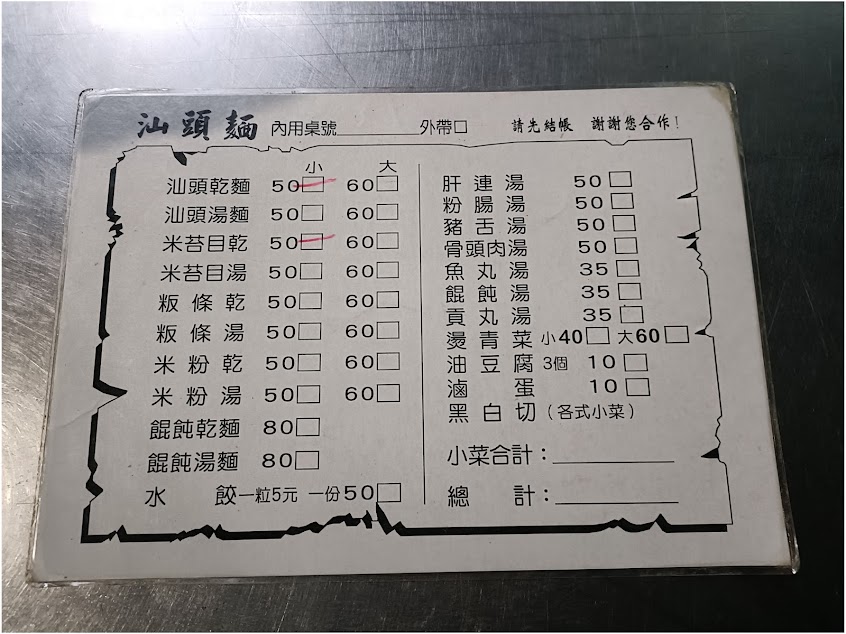 汕頭麵 內用桌號________外帶□ 請先結帳 謝謝您合作!
小 大
汕頭乾麵 50□ 60□
汕頭湯麵 50□ 60□
米苔目乾 50□ 60□
米苔目湯 50□ 60□
粄條乾 50□ 60□
粄條湯 50□ 60□
米粉乾 50□ 60□
米粉湯 50□ 60□
餛飩乾麵 80□
餛飩湯麵 80□
水餃一粒5元 一份50□
肝連湯 50□
粉腸湯 50□
豬舌湯 50□
骨頭肉湯 50□
魚丸湯 35□
餛飩湯 35□
貢丸湯 35□
燙青菜 小40□ 大60□
油豆腐 3個 10□
滷蛋 10□
黑白切(各式小菜)
小菜合計:__________
總計:__________